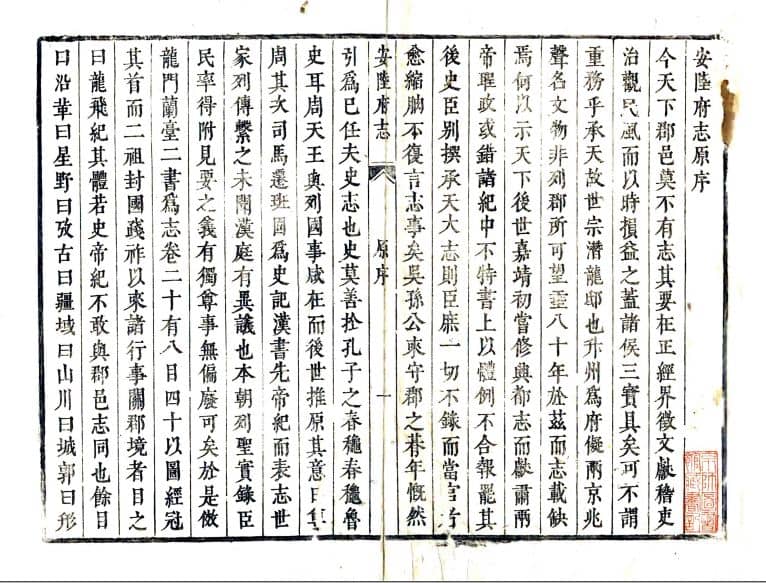 安陸府志原序
今天下郡邑莫不有志其要在正經界徵文獻稽吏
治觀民風而以時損益之蓋諸侯三寶具矣可不謂
重務乎承天故世宗潛龍邸也升州爲府儗兩京兆
聲名文物非列郡所可望垂八十年於茲而志載缺
焉何以示天下後世嘉靖初嘗修興都志而獻肅兩
帝聖政或錯諸紀中不特書上以體例不合報罷其
後史臣别撰承天大志則臣庶一切不錄而當官者
愈縮朒不復言志事矣吳孫公來守郡之朞年慨然
安陸府志
原序
一
引爲已任夫史志也史莫善於孔子之春秋春秋魯
史耳周天王與列國事咸在而後世推原其意曰
周其次司馬遷班固爲史記漢書先帝紀而表志世
家列傳繫之未聞漢庭有異議也本朝列聖實錄臣
民率得附見要之義有獨尊事無偏廢可矣於是倣
龍門蘭臺二書爲志卷二十有八目四十以圖經冠
其首而二祖封國踐祚以來諸行事關郡境者目之
曰龍飛紀其體若史帝紀不敢與郡邑志同也餘目
曰沿革曰星野曰攷古曰疆域曰山川曰城郭曰形